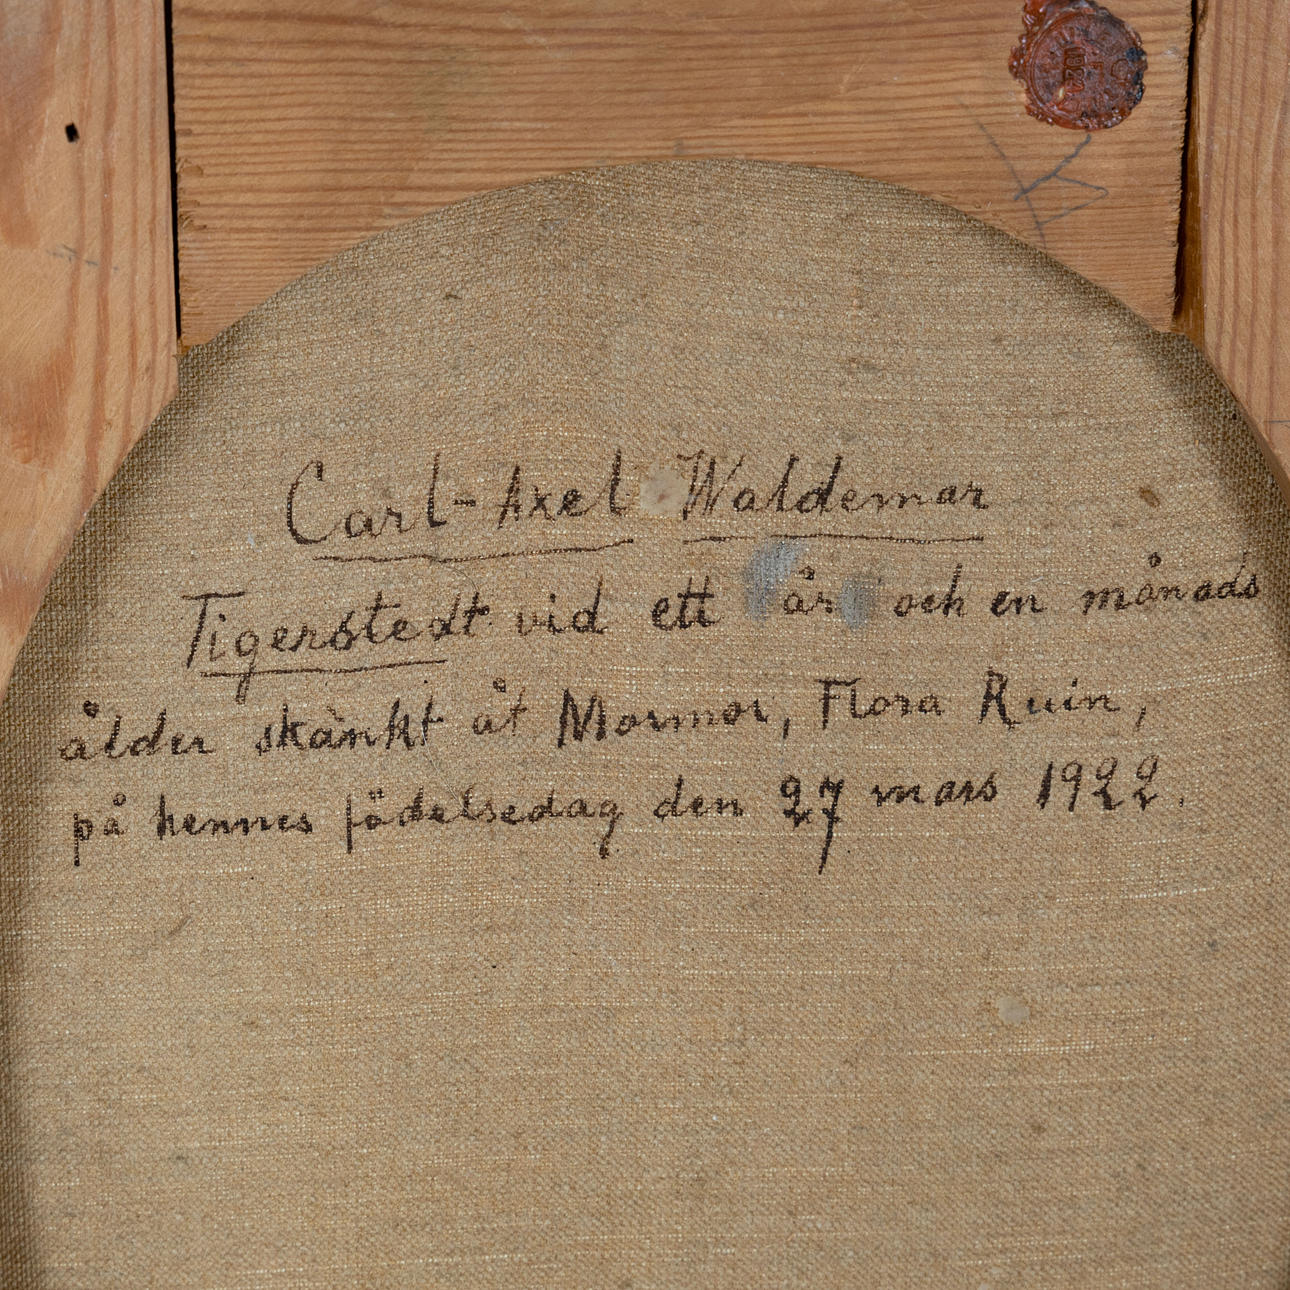 Carl-Axel Waldemar
Tigerstedt vid ett år och en månads
ålder skänkt åt Mormor, Flora Ruin,
på hennes födelsedag den 27 mars 1922.